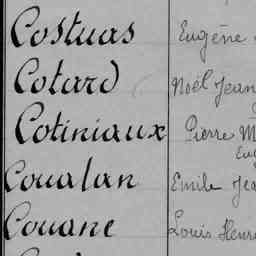 Costuas Eugène
Cotard Noël Jean
Cotiniaux Pierre M
Eug
Coualan Emile Jea
Couane Louis Henri